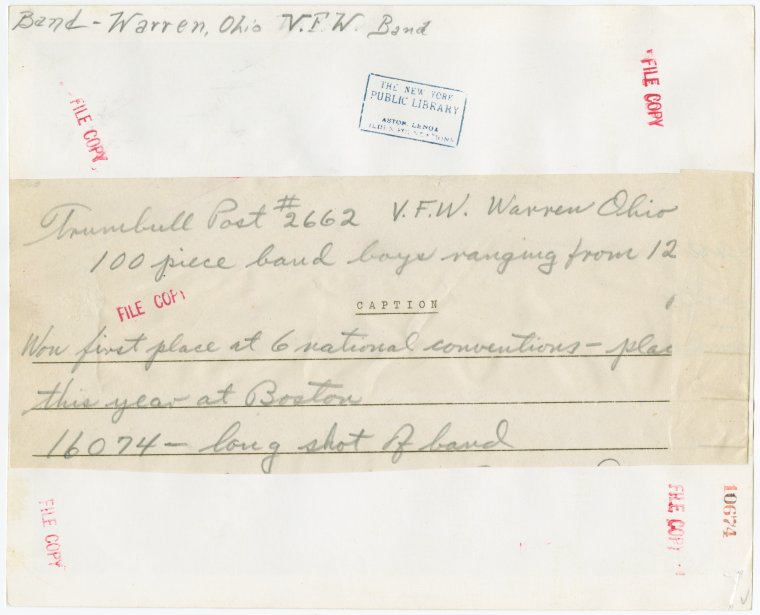 Band - Warren, Ohio V.F.W. Band
THE NEW YORK
PUBLIC LIBRARY
ASTOR, LENOX
TILDEN FOUNDATIONS
FILE COPY
FILE COPY
Trumbull Post #2662 V.F.W. Warren Ohio
100 piece band boys ranging from 12
FILE COPY
CAPTION
Won first place at 6 national conventions - plac
this year at Boston
16074 - long shot of band
FILE COPY
FILE COPY
10674